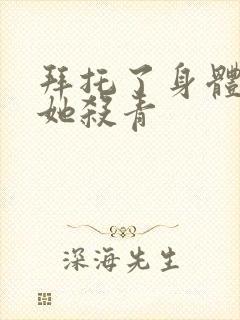 拜托了身體
她殺青
深海先生